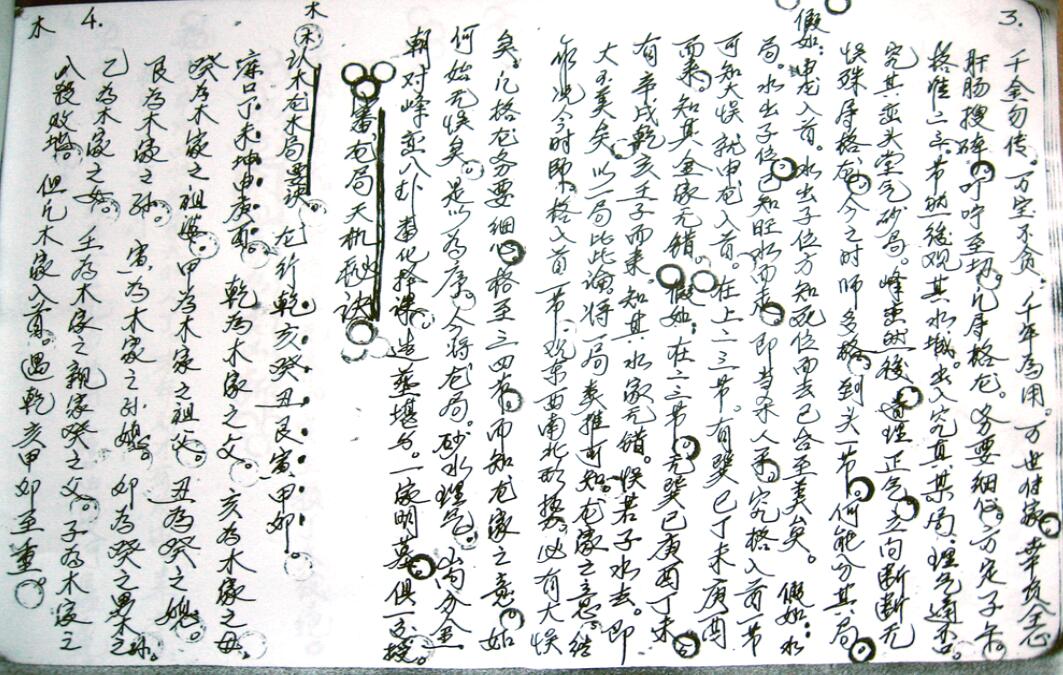 3.
千金勿传。万宝不贪。千年为用。万世传家。幸攻全心
肝肠搜碎。叮咛至切。凡序格龙。务要细似。方定子午。
格准二三节。然后观其水城。出入究真某局。理气通否。
究其峦头堂气砂局。峰峦明后。道理正气立向断断无
误殊序格龙。今之时师多格到头一节。何能分其局
假如：申龙入首。水出子位方知死位而去已合至美矣。假如：水
局。水出子位。已知旺水而来。即当杀人矣。究格入首一节
可知大误就申龙入首。在上二三节。有巽巳丁未庚酉
而来。知其金家无错。假如：在二三节。无巽巳庚酉丁未
有辛戌乾亥壬子而来。知其水家无错。误若子水去。即
大至美矣。以一局比此论。将一局类推可知。龙家之意。
况今时师。格入首一节。观东西南北形势。必有大误
矣。凡格龙务要细心格至三四节。而知龙家之意。如
何始无误矣。是以为序。今将龙局。砂水理气。山向分金
朝对峰峦入卦。变化择课。造葬堪与。一家明墓俱一交授。
审龙局天机秘诀
木
木
认木龙木局要诀。龙行乾亥癸丑艮寅甲卯。
库口丁未坤申庚酉。乾为木家之父。亥为木家之母。
癸为木家之祖婆。甲为木家之祖父。丑为癸之媳。
艮为木家之孙。寅为木家之孙媳。卯为癸之男木之孙。
乙为木家之女。壬为木家之亲家癸之父。子为木家之
4.
入骸败堆。但凡木家入首。遇乾亥甲卯至重。
木